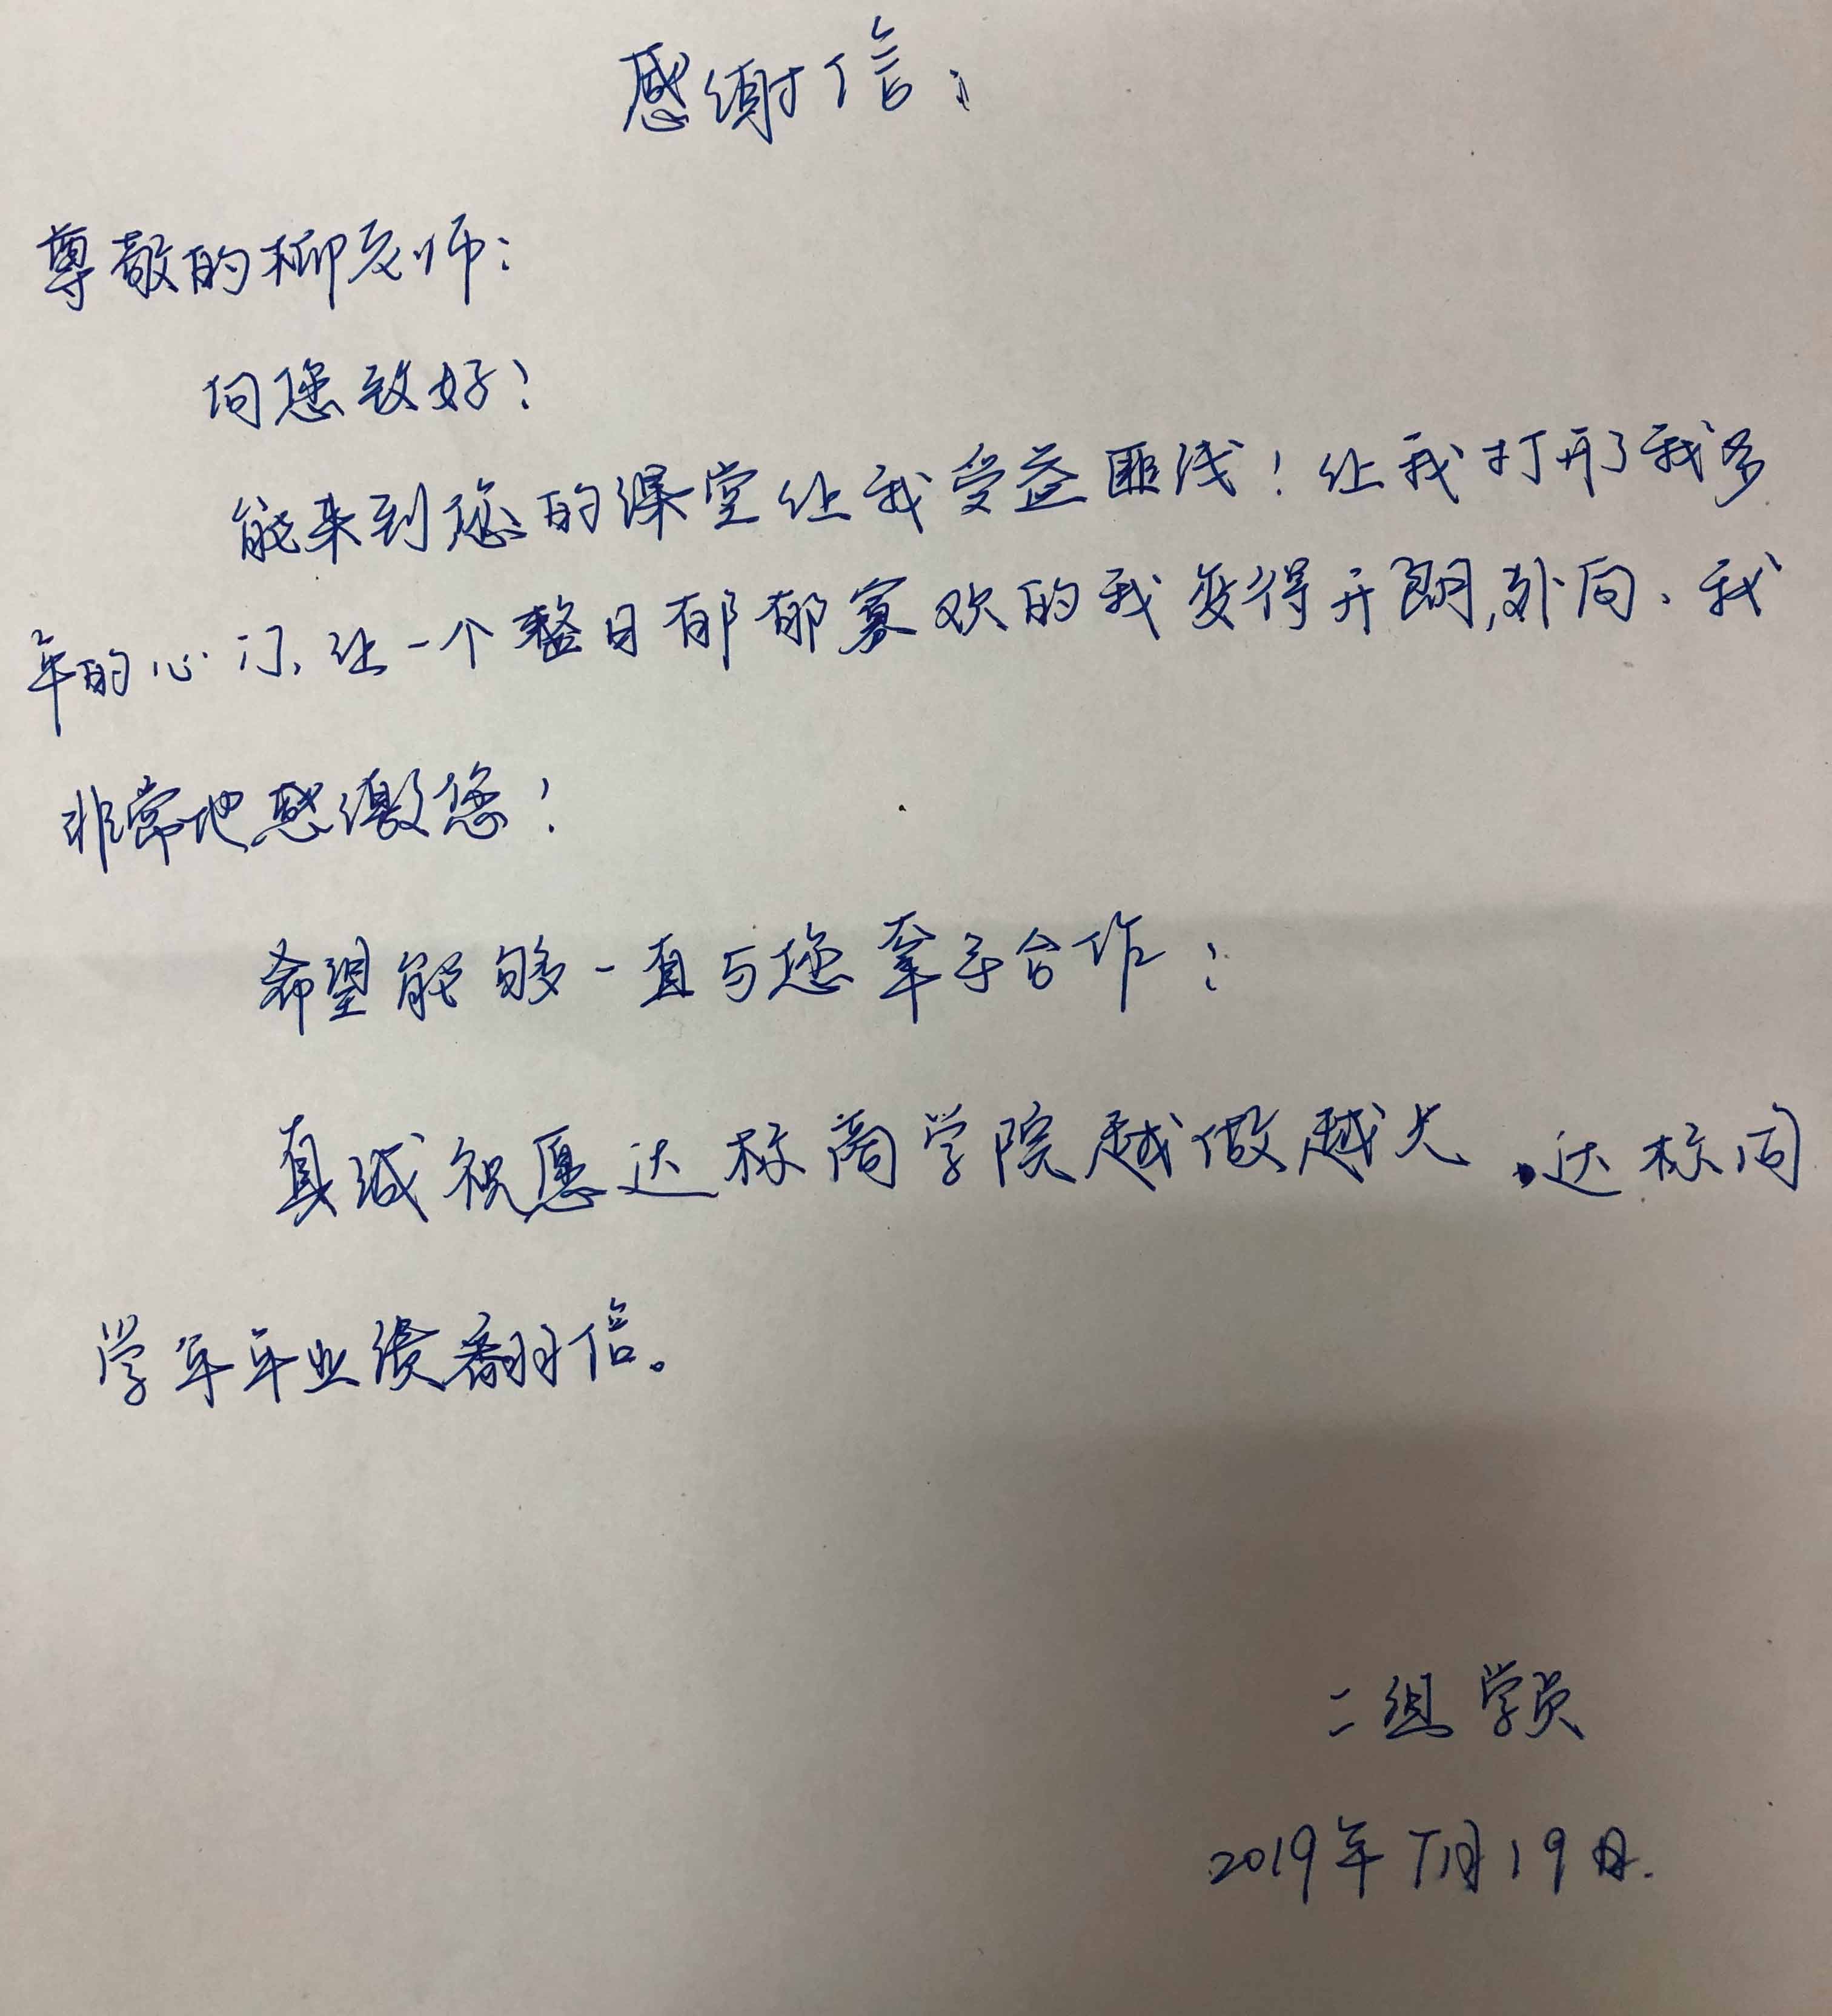 感谢信：
尊敬的柳老师：
向您致好！
能来到您的课堂让我受益匪浅！让我打开了我多
年的心门，让一个整日郁郁寡欢的我变得开朗，外向，我
非常地感激您！
希望能够一直与您牵手合作！
真诚祝愿达标商学院越做越大，达标同
学年年业绩翻倍。
二组学员
2019年7月19日.